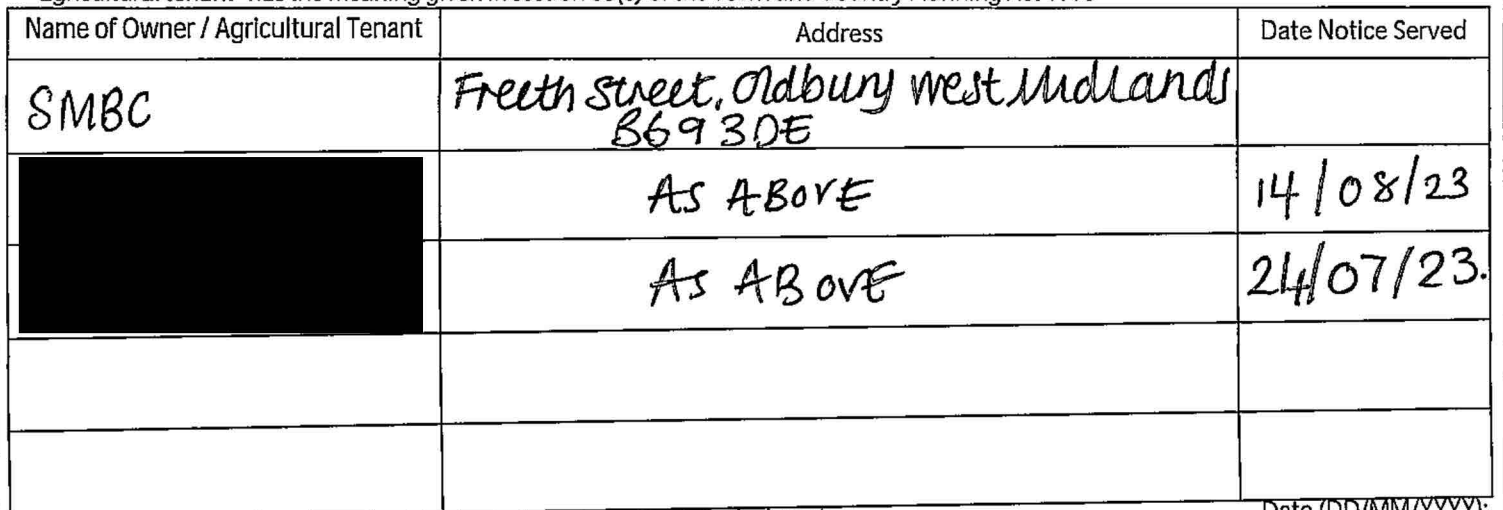 Name of Owner / Agricultural Tenant Address Date Notice Served
SMBC Freeth Street, Oldbury West Midlands
B69 3DE
As ABOVE 14/08/23
As ABOVE 24/07/23.
Date (DD/MM/YYYY):